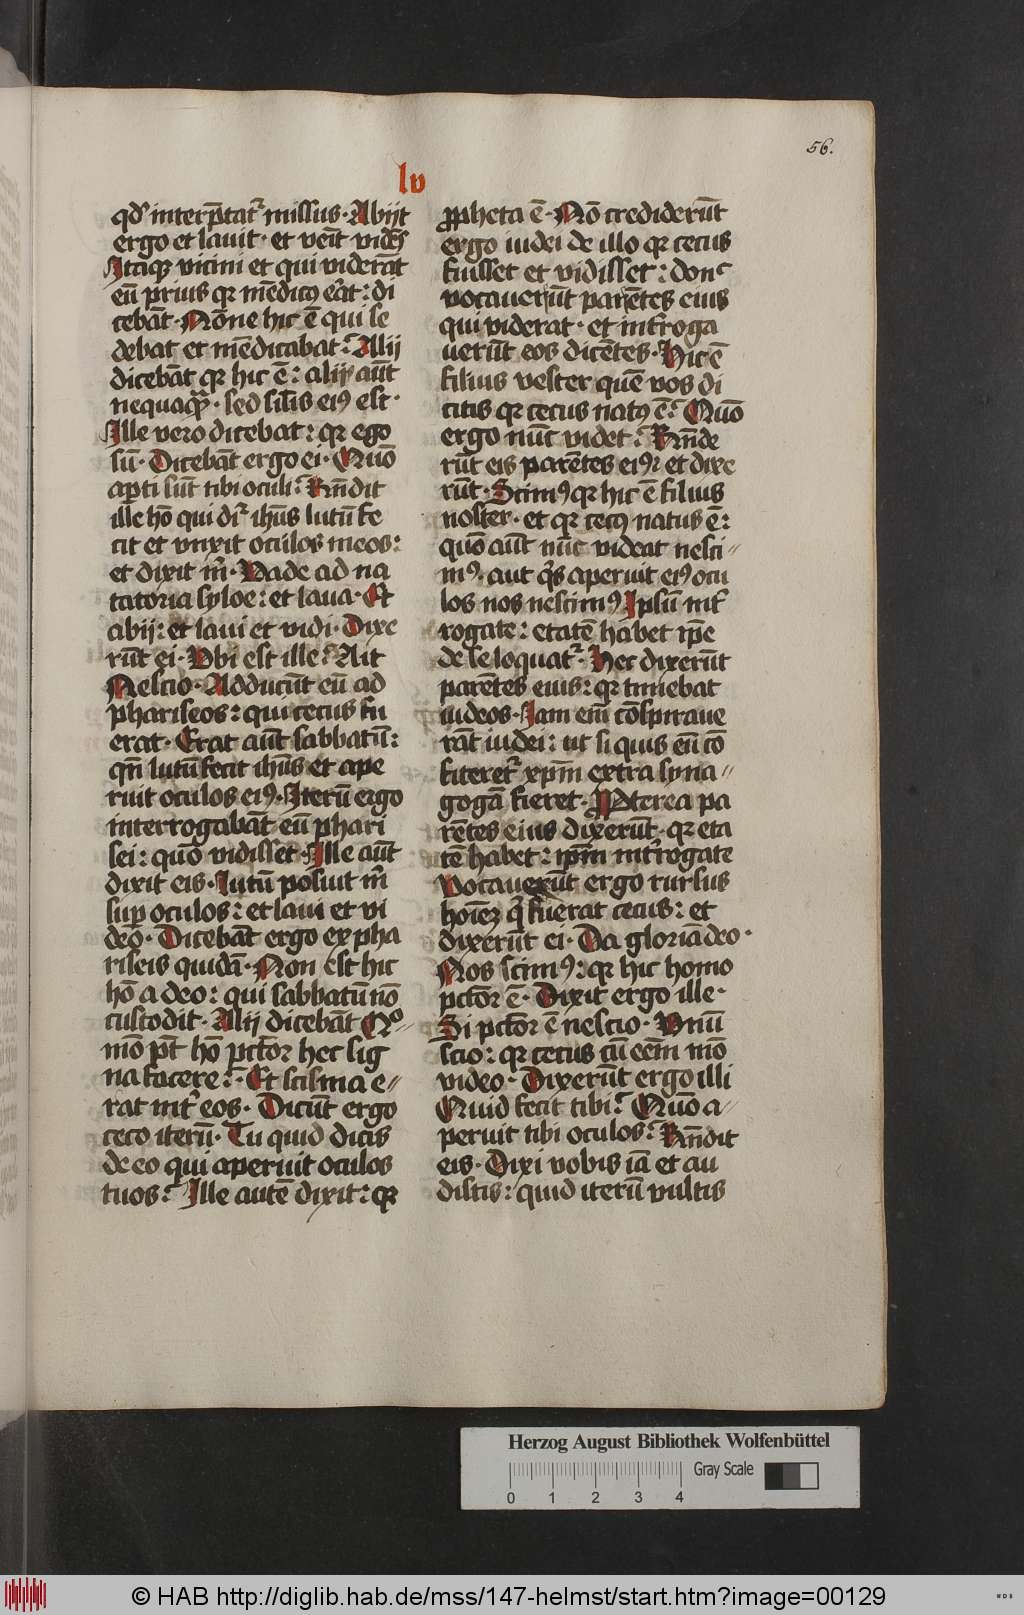 56.
lv
qd' interp̄tat᷑ missus · Abijt
ergo et lauit · et veīt vidēs
Itaqꝫ vicini et qui viderāt
eū prius qꝛ mēdicꝰ erat : di
cebāt · Nōne hic ē qui se
debat et mēdicabat ? Alij
dicebāt qꝛ hic ē : alij aūt
nequaqꝫ · sed sil̄is eiꝰ est ·
Ille vero dicebat : qꝛ ego
sū · Dicebāt ergo ei · Quō
ap̄ti sūt tibi oculi ? Rn̄dit
ille hō qui dr̄ ihūs lutū fe
cit et vnxit oculos meos :
et dixit m̄ · Vade ad na
tatoria syloe : et laua · Et
abij : et laui et vidi · Dixe
rūt ei · Vbi est ille ? Ait
Nescio · Adducūt eū ad
phariseos : qui cecus fu
erat · Erat aūt sabbatū :
qn̄ lutū fecit ihūs et ape
ruit oculos eiꝰ · Iterū ergo
interrogabāt eū phari
sei : quō vidisset · Ille aūt
dixit eis · Lutū posuit m̄
sup̄ oculos : et laui et vi
deo · Dicebāt ergo ex pha
riseis quidā · Non est hic
hō a deo : qui sabbatū nō
custodit · Alij dicebāt Quo⸗
mō pt̄ hō pctōr hec sig
na facere ? · Et scisma e⸗
rat int᷑ eos · Dicūt ergo
ceco iterū · Tu quid dicis
de eo qui aperuit oculos
tuos ? Ille autē dixit : qꝛ
ꝓpheta ē · Nō crediderūt
ergo iudei de illo qꝛ cecus
fuisset et vidisset : donc̄
vocauerūt parētes eius
qui viderat · et int᷑roga
uerūt eos dicētes · Hic ē
filius vester quē vos di
citis qꝛ cecus natꝰ ē ? Quō
ergo nūc videt ? Rn̄de
rūt eis parētes eiꝰ et dixe
rūt · Scimꝰ qꝛ hic ē filius
noster · et qꝛ cecꝰ natus ē :
quō aūt nūc videat nesci⸗
mꝰ · aut q̄s aperuit eiꝰ ocu
los nos nescimꝰ Ipsū int᷑
rogate : etatē habet ip̄e
de se loquat᷑ · Hec dixerūt
parētes eius : qꝛ timebat
iudeos · Iam eni cōspiraue
rāt iudei : ut si quis eū cō
fiteret᷑ xp̄m extra syna⸗
gogā fieret · Ꝓpterea pa
rētes eius dixerūt · qꝛ eta
tē habet : ip̄m int᷑rogate
Vocauerūt ergo rursus
hoīeꝫ q̄ fuerat cecus : et
dixerūt ei · Da gloriā deo ·
Nos scimꝰ : qꝛ hic homo
pctōr ē · Dixit ergo ille ·
Si pctōr ē nescio · Vnū
scio : qꝛ cecus cū eēm mō
video · Dixerūt ergo illi
Quid fecit tibi ? Quō a⸗
peruit tibi oculos ? Rn̄dit
eis · Dixi vobis iā et au
distis : quid iterū vultis
Herzog August Bibliothek Wolfenbüttel
Gray Scale
0 1 2 3 4
© HAB http://diglib.hab.de/mss/147-helmst/start.htm?image=00129